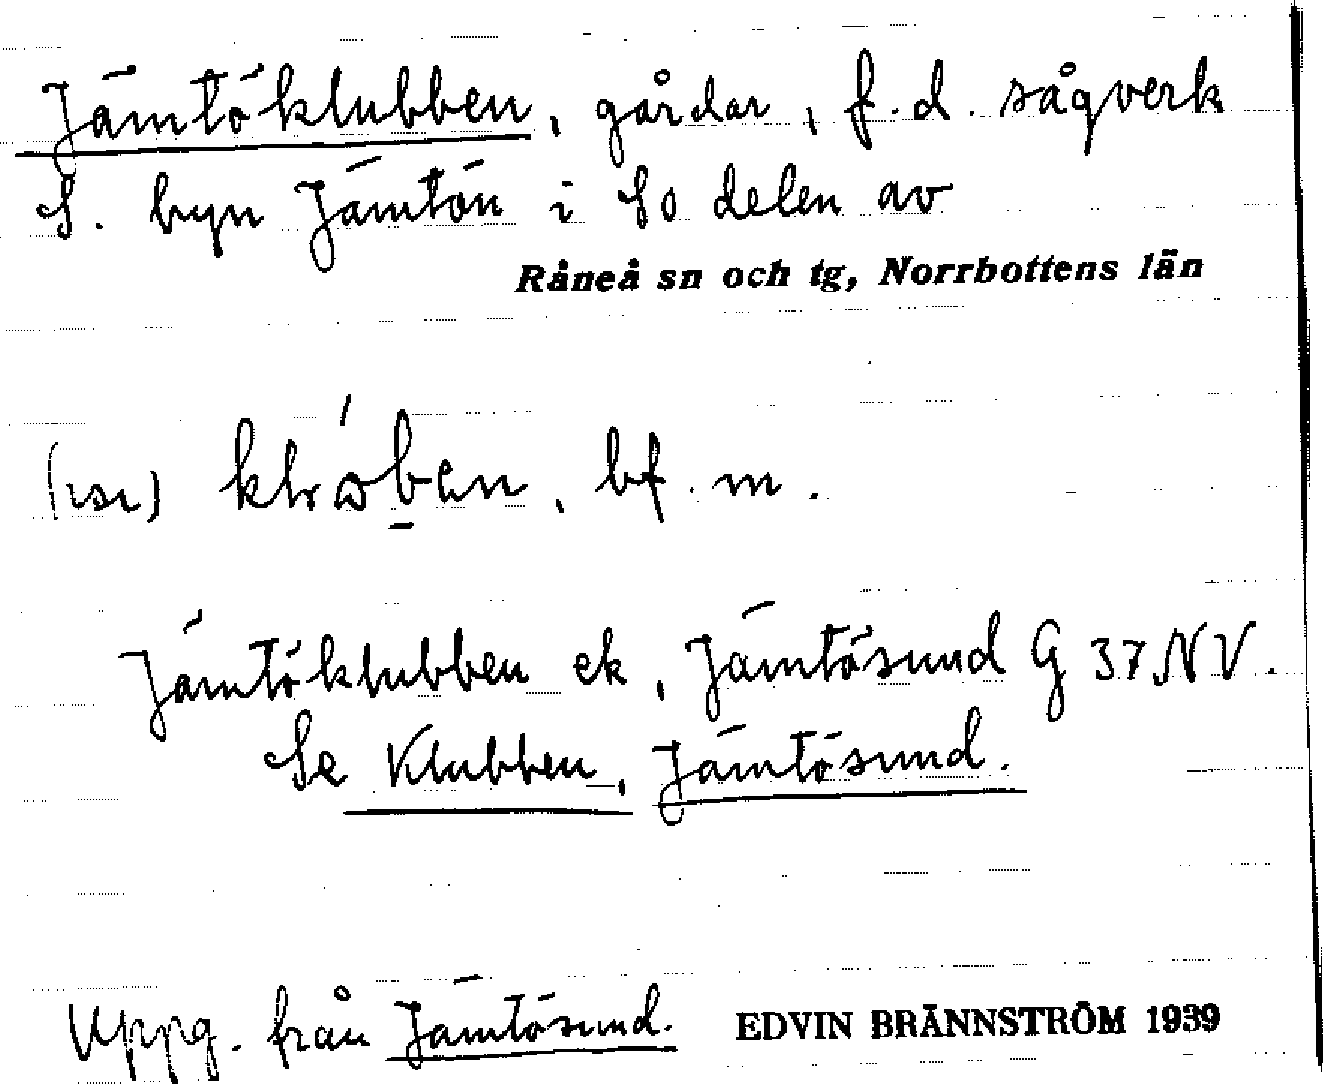 Jämtöklubben, gårdar, f.d. sågverk
S. byn Jämtön i SO delen av
Råneå sn och tg, Norrbottens län
bf. m.
Jämtöklubben ek, Jämtösund G 37 NV.
Se Klubben, Jämtösund.
Uppg. från Jämtösund. EDVIN BRÄNNSTRÖM 1939